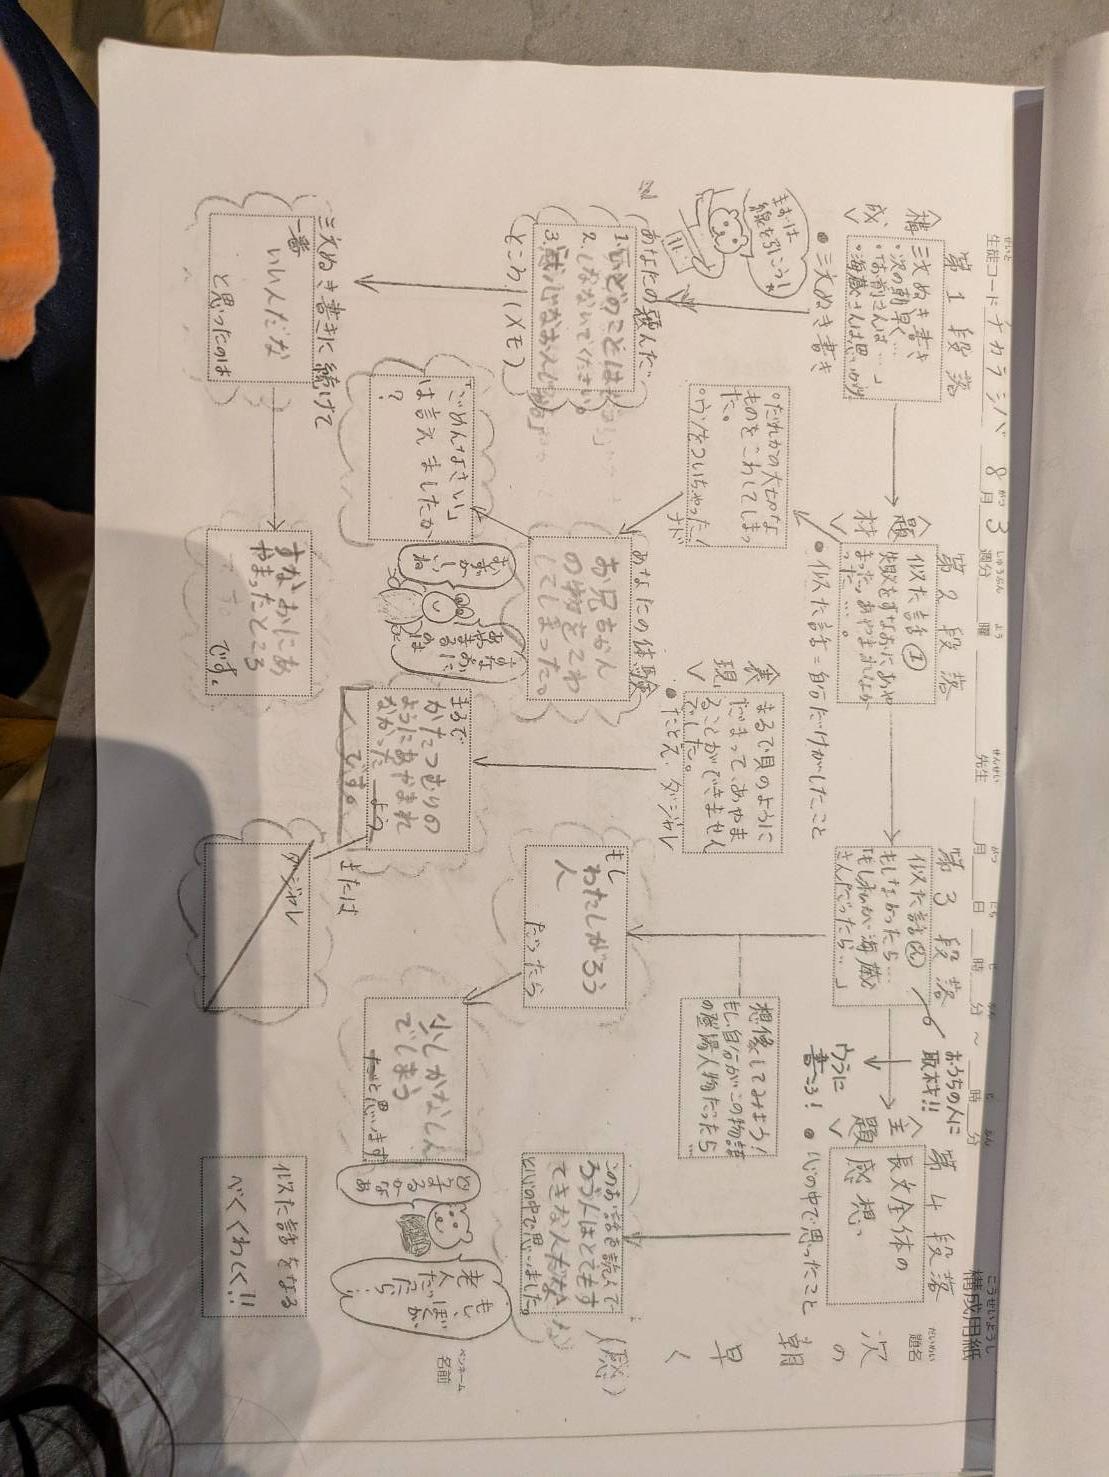 構成用紙
題名
次の朝早く
(感)
ペンネーム
名前
生徒コード チカラシバ 8月3週分 曜 先生 月 日 時 分 ~ 時 分
第1段落
<構成>
三文ぬき書き
・次の朝早く…
・「お前さんは…」
・海蔵さんは思
・三文ぬき書き
まずは
線を引こうね
あなたの読んだ
ところ(メモ)
三文ぬき書きに続けて
一番
いい人だな
と思ったのは
すなおにあ
やまったところ
です。
第2段落
<題材>
似た話①
失敗をすなおにあや
まった。あやまれなか
った…。
・似た話=自分だけがしたこと
・だれかの大切な
ものをこわしてしまっ
た。
・ウソをついちゃった!
など
あなたの体験
お兄ちゃん
の物をこわ
してしまった。
「ごめんなさい」
は言えましたか
?
すなおに
あやまるのは
むずかしいね
<表現>
まるで貝のように
だまって、あやま
ることができません
でした。
・たとえ・ダジャレ
まるで
かたつむりの
ようにあやまれ
なかった
です。
または
ダジャレ
第3段落
似た話②
もしなかったら…
「もし私が海蔵
さんだったら…」
おうちの人に
取材!!
ウラに
書こう!
想像してみよう!
もし、自分がこの物語
の登場人物だったら…
もし
わたしがろう
人
だったら
少しかなしん
でしまう
と思います
第4段落
<主題>
長文全体の
感想
・心の中で思ったこと
このお話を読んで
ろう人はとてもす
てきな人だな
と心の中で思いました。
もし、ぼくが
老人だったら
似た話をなる
べくくわしく!!